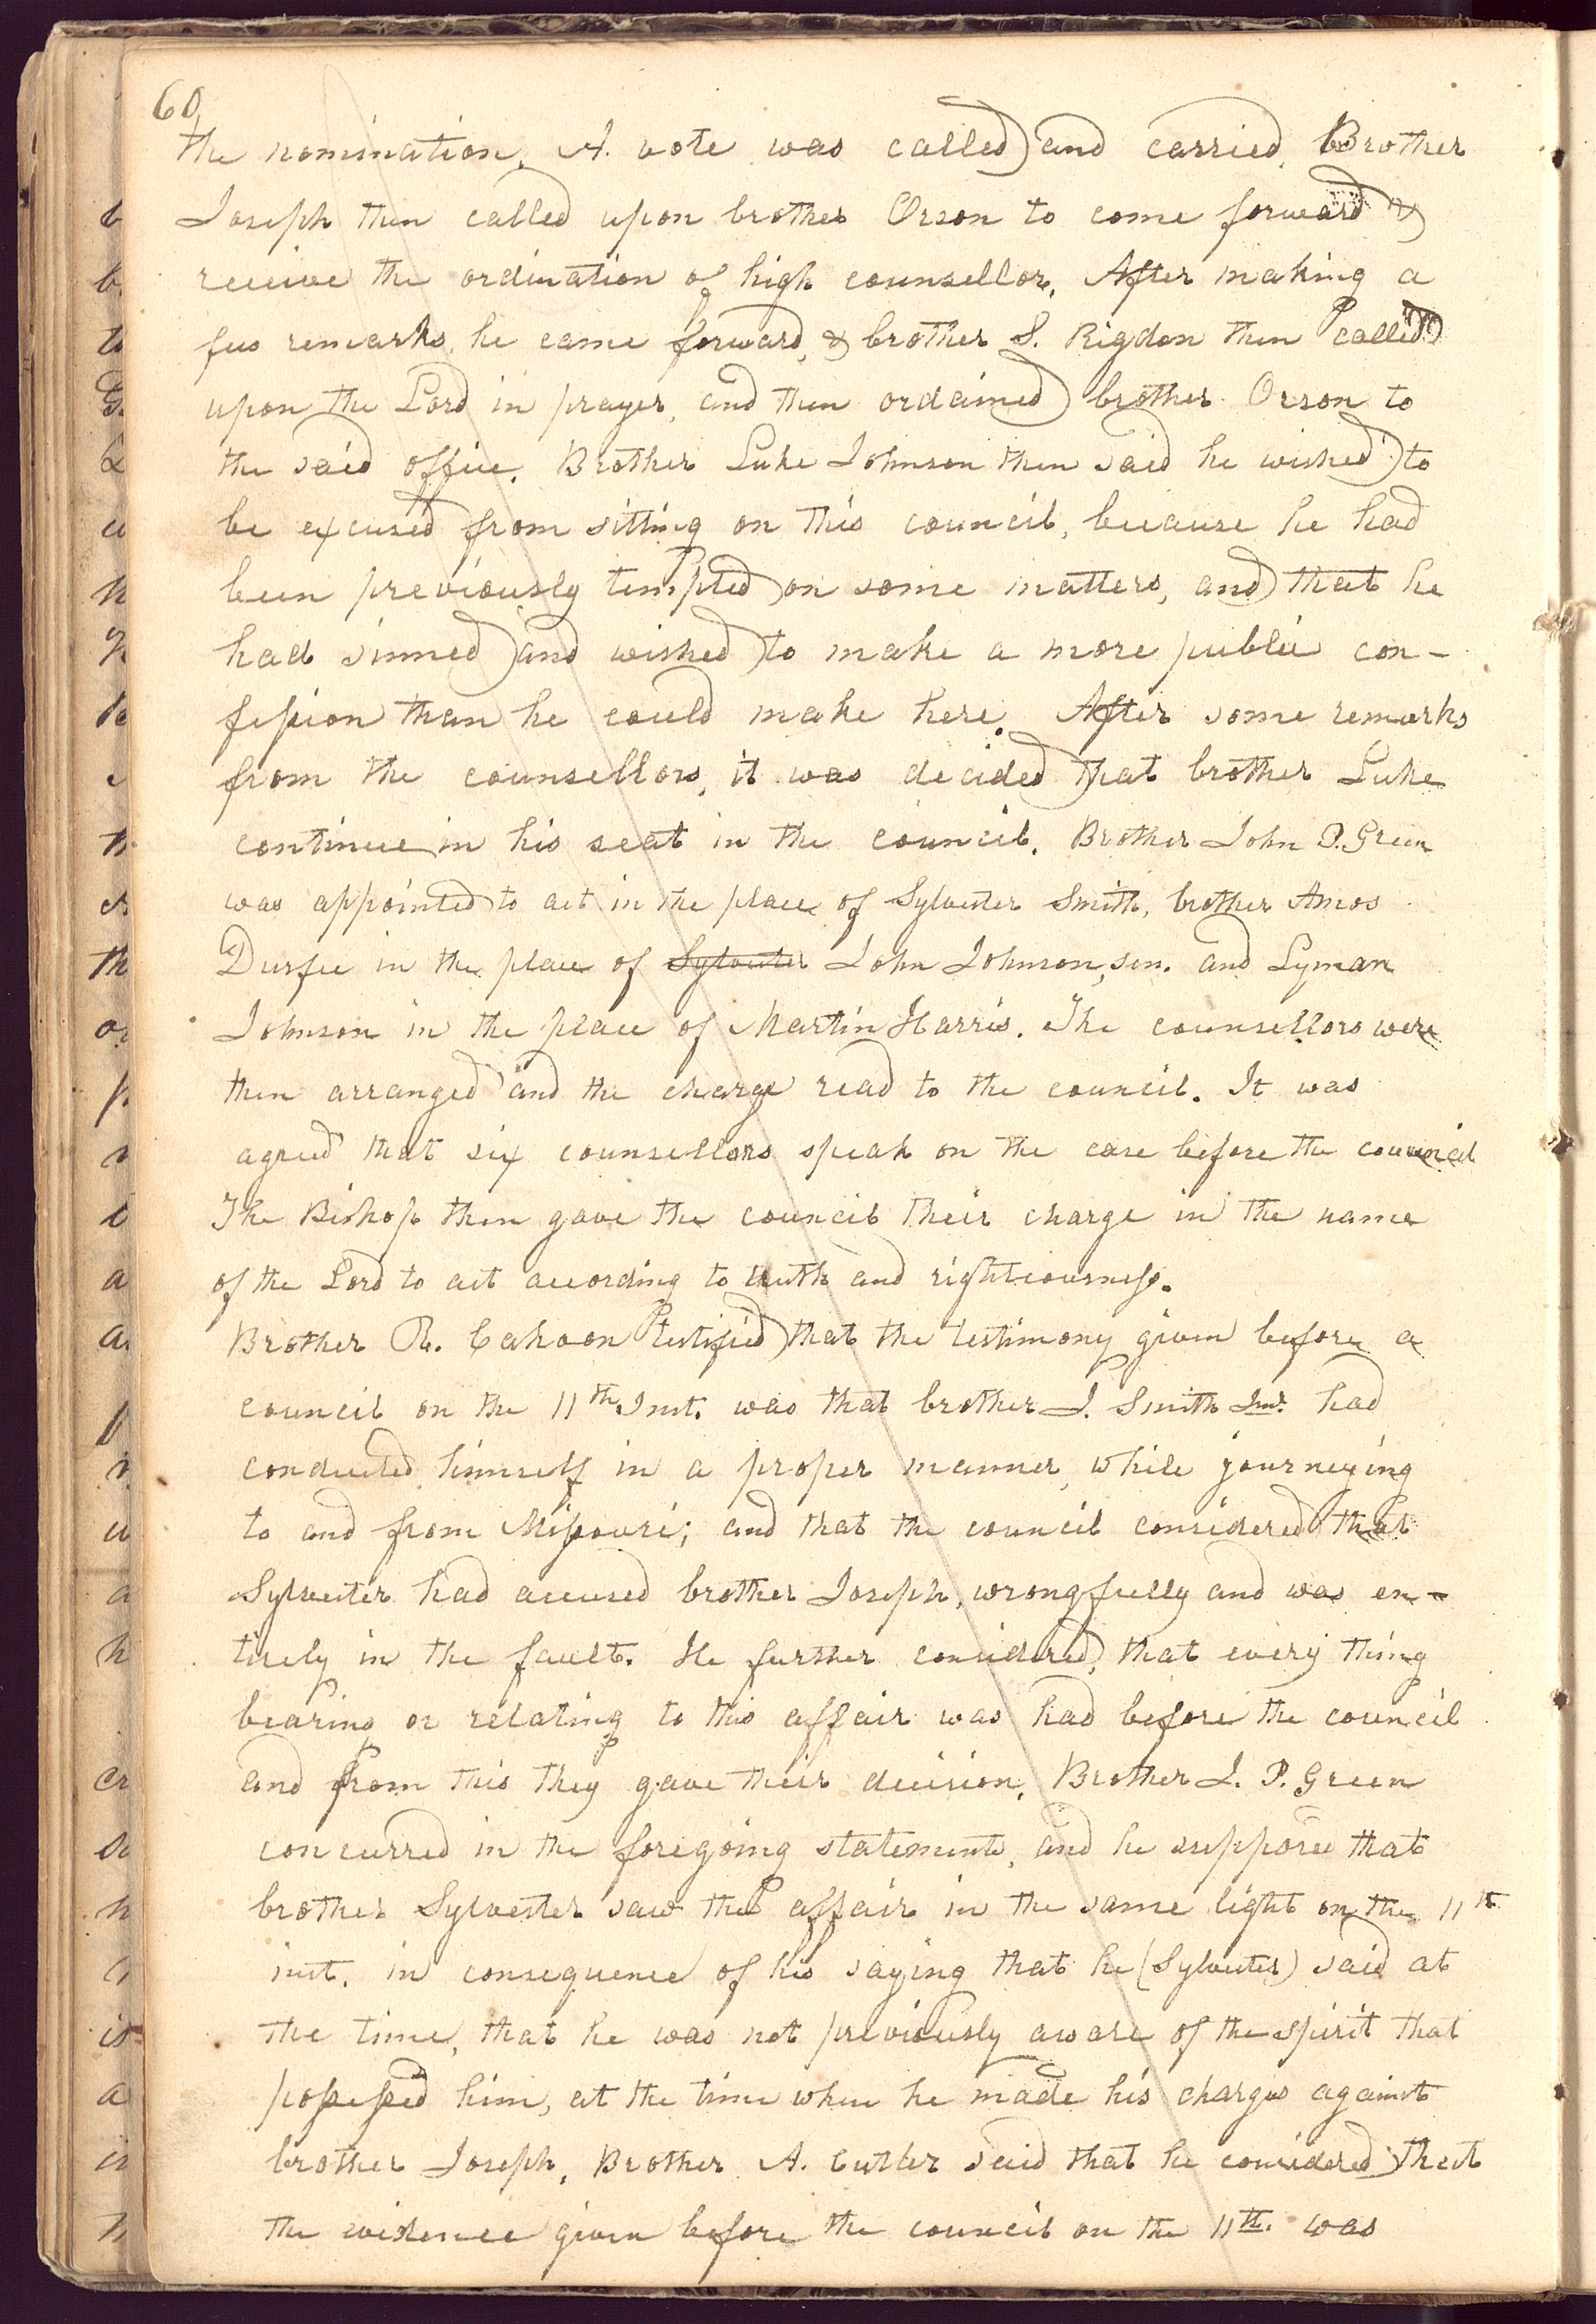 60
the nomination. A. vote was called and carried. Brother
Joseph then called upon brother Orson to come forward &
receive the ordination of high counsellor. After making a
few remarks he came forward, & brother S. Rigdon then called
upon the Lord in prayer, and then ordained brother Orson to
the said office. Brother Luke Johnson then said he wished to
be excused from sitting on this council, because he had
been previously tempted on some matters, and that he
had sinned and wished to make a more public con-
fession than he could make here. After some remarks
from the counsellors, it was decided that brother Luke
continue in his seat in the council. Brother John P. Green
was appointed to act in the place of Sylvester Smith, brother Amos
Durfee in the place of Sylvester John Johnson, sen. and Lyman
Johnson in the place of Martin Harris. The counsellors were
then arranged and the charge read to the council. It was
agreed that six counsellors speak on the case before the council
The Bishop then gave the council their charge in the name
of the Lord to act according to truth and righteousness.
Brother R. Cahoon testified that the testimony given before a
council on the 11th Inst. was that brother J. Smith Jun. had
conducted himself in a proper manner, while journeying
to and from Missouri; and that the council considered that
Sylvester had accused brother Joseph, wrongfully and was en-
tirely in the fault. He further considered, that every thing
bearing or relating to this affair was had before the council
and from this they gave their decision. Brother J. P. Green
concurred in the foregoing statements, and he supposed that
brother Sylvester saw the affair in the same light on the 11th
inst. in consequence of his saying that he (Sylvester) said at
the time, that he was not previously aware of the spirit that
possessed him, at the time when he made his charges against
brother Joseph. Brother A. Cutler said that he considered that
the evidence given before the council on the 11th. was